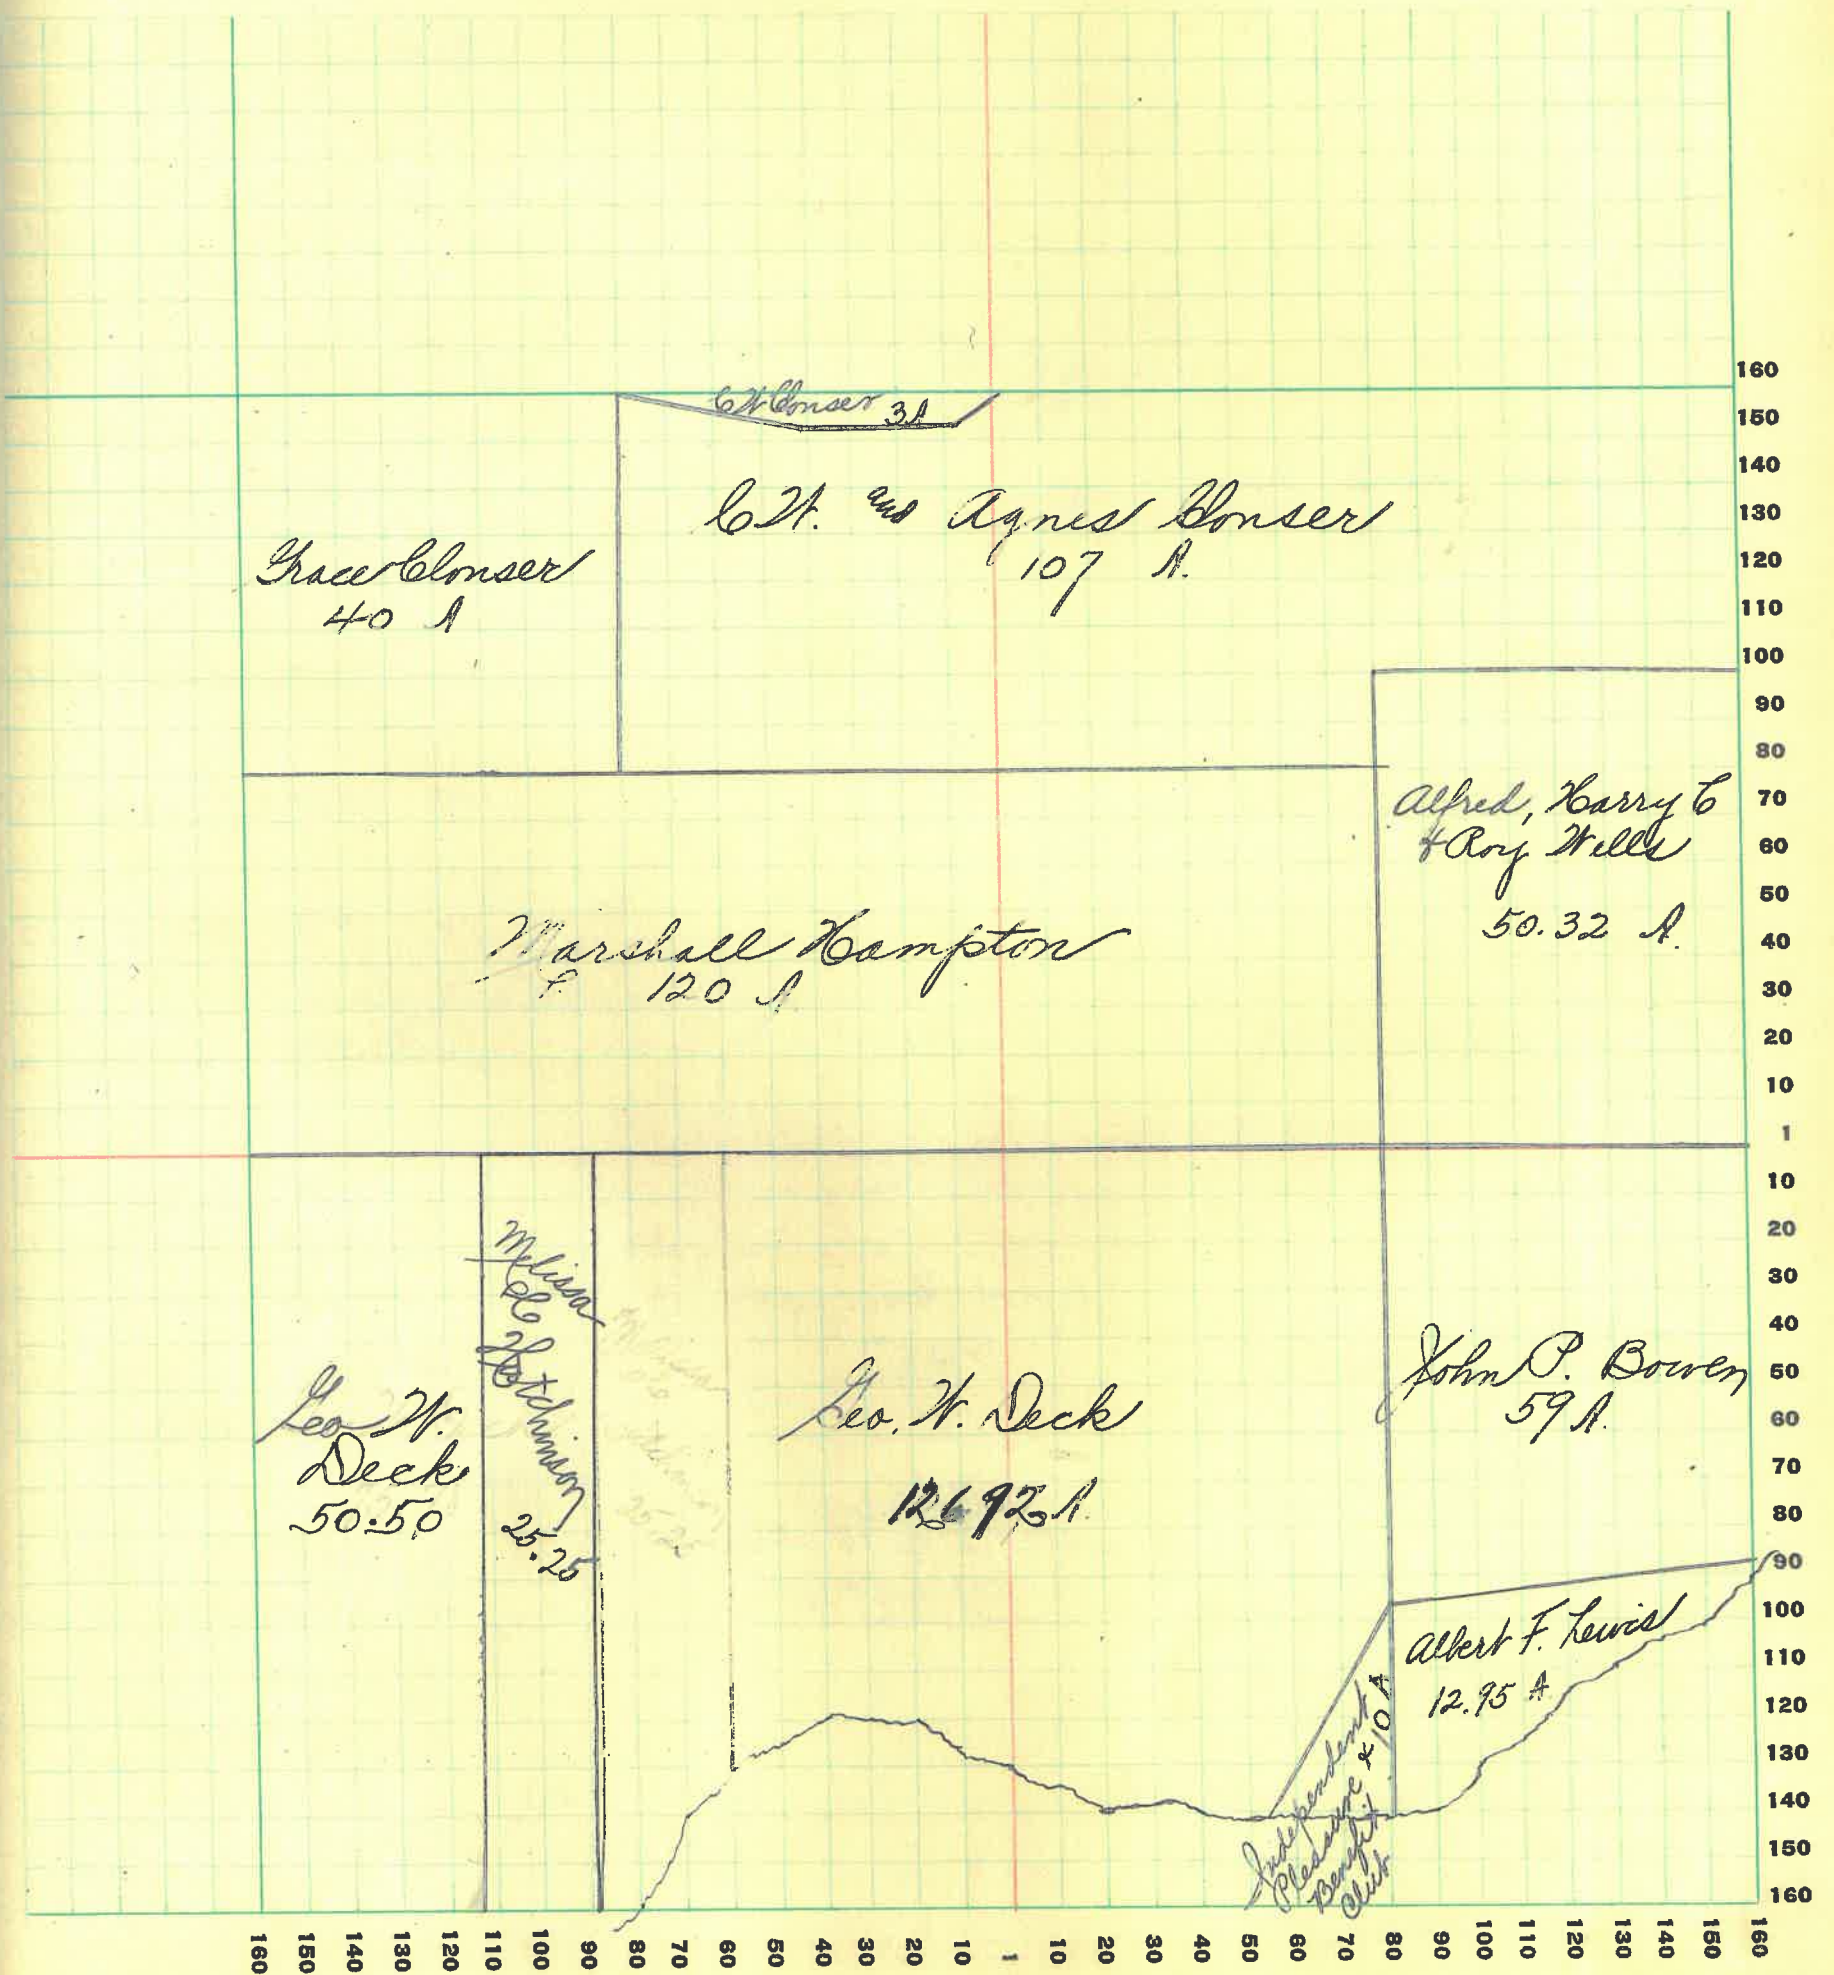 C W Clonser 3 A
C W. and Agnes Clonser
107 A.
Grace Clonser
40 A
Alfred, Harry C
& Roy Wells
50.32 A.
Marshall Hampton
120 A
Melissa
Hutchinson
25.25
Geo W.
Deck
50.50
Geo. W. Deck
John P. Bowen
59 A.
Albert F. Lewis
12.95 A
Independent
Pleasure &
Benefit
Club
10 A
160
150
140
130
120
110
100
90
80
70
60
50
40
30
20
10
1
10
20
30
40
50
60
70
80
90
100
110
120
130
140
150
160
160 150 140 130 120 110 100 90 80 70 60 50 40 30 20 10 1 10 20 30 40 50 60 70 80 90 100 110 120 130 140 150 160